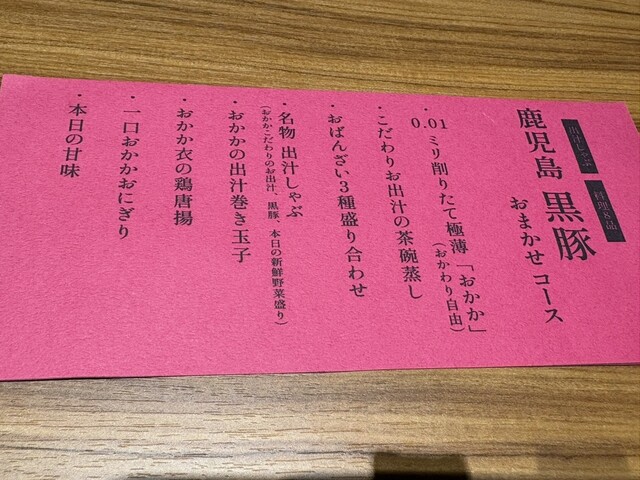 出汁しゃぶ
料理8品
鹿児島 黒豚
おまかせコース
・0.01ミリ削りたて極薄「おかか」
(おかわり自由)
・こだわりお出汁の茶碗蒸し
・おばんざい3種盛り合わせ
・名物 出汁しゃぶ
(おかかこだわりのお出汁、黒豚、本日の新鮮野菜盛り)
・おかかの出汁巻き玉子
・おかか衣の鶏唐揚
・一口おかかおにぎり
・本日の甘味